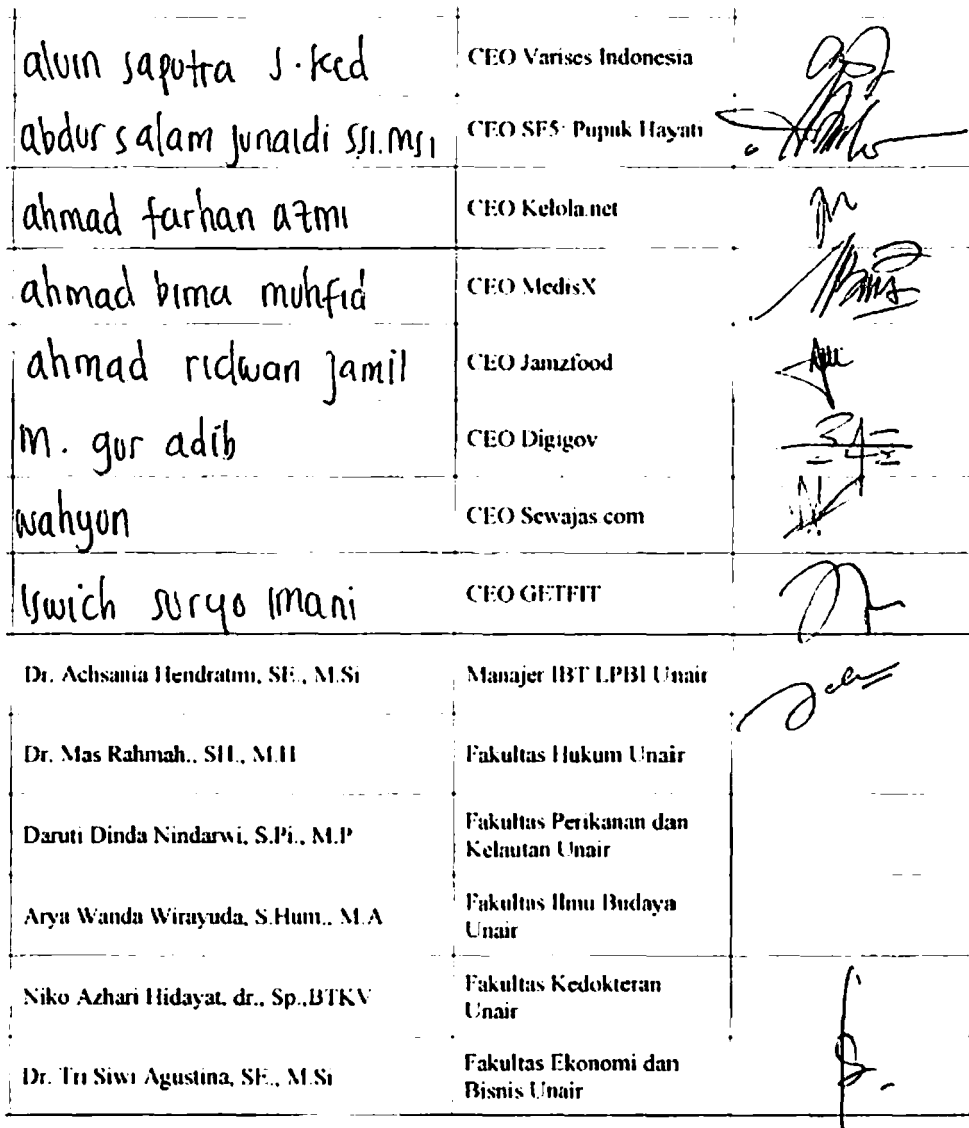 alvin saputra S.ked
CEO Varises Indonesia
abdus salam junaidi SSI.MSI
CEO SF5: Pupuk Hayati
ahmad farhan azmi
CEO Kelola.net
ahmad bima muhfid
CEO MedisX
ahmad ridwan jamil
CEO Jamzfood
M. gur adib
CEO Digigov
wahyon
CEO Sewajas.com
Iswich suryo imani
CEO GETFIT
Dr. Achsania Hendratmi, SE., M.Si
Manajer IBT LPBI Unair
Dr. Mas Rahmah., SH., M.H
Fakultas Hukum Unair
Daruti Dinda Nindarwi, S.Pi., M.P
Fakultas Perikanan dan
Kelautan Unair
Arya Wanda Wirayuda, S.Hum., M.A
Fakultas Ilmu Budaya
Unair
Niko Azhari Hidayat, dr., Sp.,BTKV
Fakultas Kedokteran
Unair
Dr. Tri Siwi Agustina, SE., M.Si
Fakultas Ekonomi dan
Bisnis Unair